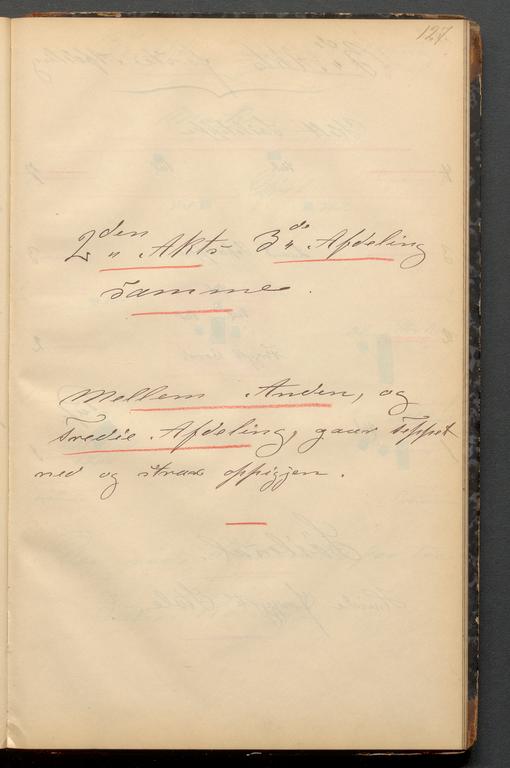 127.
2den Akts 3de Afdeling
samme.
Mellem Anden, og
tredie Afdeling, gaar teppet
ned og strax oppigjen.